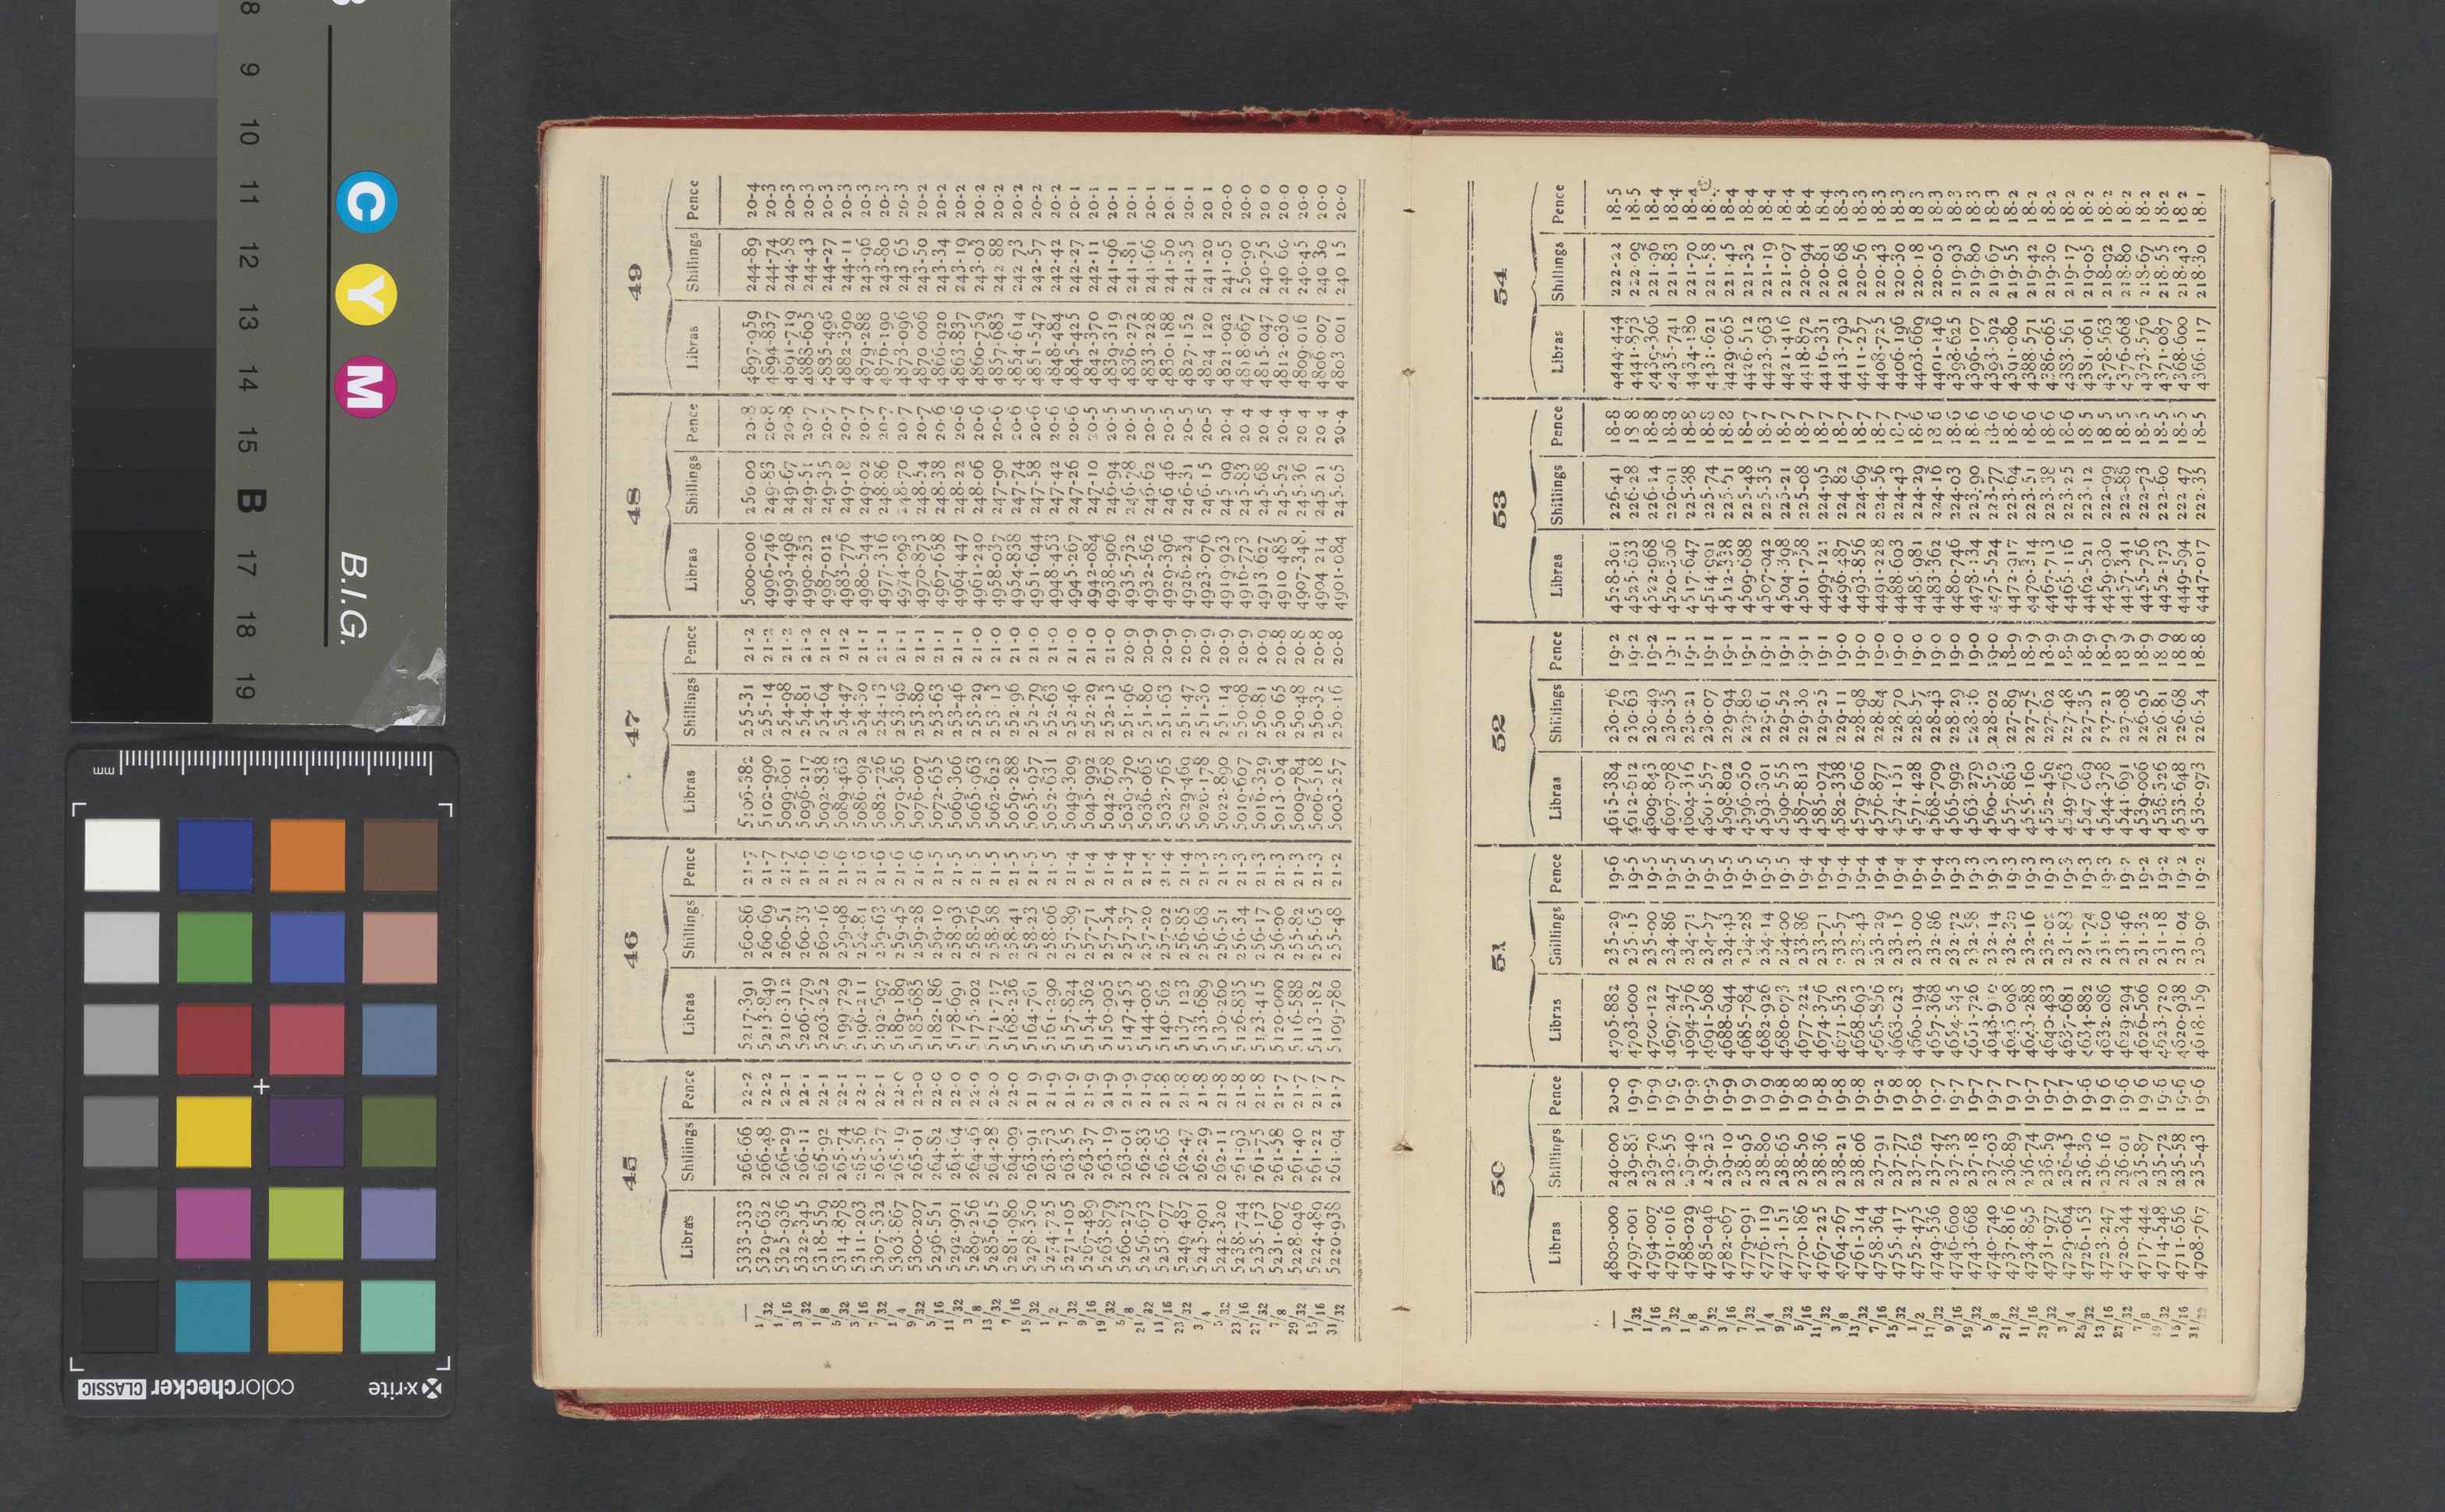 45 46 47 48 49
Libras Shillings Pence Libras Shillings Pence Libras Shillings Pence Libras Shillings Pence Libras Shillings Pence
— 5333·333 266·66 22·2 5217·391 260·86 21·7 5106·382 255·31 21·2 5000·000 250·00 20·8 4897·959 244·89 20·4
1/32 5329·632 266·48 22·2 5213·849 260·69 21·7 5102·990 255·14 21·2 4996·746 249·83 20·8 4894·837 244·74 20·3
1/16 5325·936 266·29 22·1 5210·312 260·51 21·7 5099·601 254·98 21·2 4993·498 249·67 20·8 4891·719 244·58 20·3
3/32 5322·245 266·11 22·1 5206·779 260·33 21·6 5096·217 254·81 21·2 4990·253 249·51 20·7 4888·605 244·43 20·3
1/8 5318·559 265·92 22·1 5203·252 260·16 21·6 5092·838 254·64 21·2 4987·012 249·35 20·7 4885·496 244·27 20·3
5/32 5314·878 265·74 22·1 5199·729 259·98 21·6 5089·463 254·47 21·2 4983·776 249·18 20·7 4882·390 244·11 20·3
3/16 5311·203 265·56 22·1 5196·211 21·6 5086·092 254·30 21·1 4980·544 249·02 20·7 4879·288 243·96 20·3
7/32 5307·532 265·37 22·1 5192·697 259·63 21·6 5082·726 254·13 21·1 4977·316 248·86 20·7 4876·190 243·80 20·3
1/4 5303·867 265·19 22·0 5189·189 259·45 21·6 5079·365 253·96 21·1 4974·093 248·70 20·7 4873·096 243 65 20·3
9/32 5300·207 265·01 22·0 5185·685 259·28 21·6 5076·007 253·80 21·1 4970·873 248·54 20·7 4870 006 243·50 20·2
5/16 5296·551 264·82 22·0 5182·186 259·10 21·5 5072·655 253·63 21·1 4967·658 248·38 20·6 4866·920 243·34 20·2
11/32 5292·901 264·64 22·0 5178·691 258·93 21·5 5069·306 253·46 21·1 4964·447 248·22 20·6 4863·837 243·19 20·2
3/8 5289·256 264·46 22·0 5175·202 258·76 21·5 5065·963 253·29 21·0 4961·240 248·06 20·6 4860·759 243·03 20·2
13/32 5285·615 264·28 22·0 5171·717 258·58 21·5 5062·623 253·13 21·0 4958·037 247·90 20·6 4857·685 242 88 20·2
7/16 5281·980 264·09 22·0 5168·236 258·41 21·5 5059·288 252·96 21·0 4954·838 247·74 20·6 4854·614 242 73 20·2
15/32 5278·350 263·91 21 9 5164·761 258·23 21·5 5055·957 252·79 21·0 4951·644 247·58 20·6 4851·547 242·57 20·2
1/2 5274·725 263·73 21·9 5161·290 258·06 21·5 5052·631 252·63 21·0 4948·453 247·42 20·6 4848·484 242·42 20·2
7/32 5271·105 263·55 21·9 5157·824 257·89 21·4 5049·309 252·46 21·0 4945·267 247·26 20·6 4845·425 242·27 20·1
9/16 5267·489 263·37 21·9 5154·362 257·71 21·4 5045·992 252·29 21·0 4942·084 247·10 20·5 4842·370 242·11 20·1
19/32 5263·879 263·19 21·9 5150·905 257·54 21·4 5042·678 252·13 21·0 4938·906 246·94 20·5 4839·319 241·96 20·1
5/8 5260·273 263·01 21·9 5147·453 257·37 21·4 5039·370 251·96 20·9 4935·732 246·78 20·5 4836·272 241·81 20·1
21/32 5256·673 262·83 21·9 5144·005 257·20 21·4 5036·065 251·80 20·9 4932·562 246·62 20·5 4833·228 241·66 20·1
11/16 5253·077 262·65 21·8 5140·562 257·02 21·4 5032·765 251·63 20·9 4929·396 246 46 20·5 4830·188 241·50 20·1
23/32 5249·487 262·47 21·8 5137·123 256·85 21·4 5029·469 251·47 20·9 4926·234 246·31 20·5 4827·152 241·35 20·1
3/4 5245·901 262·29 21·8 5133·689 256·68 21·3 5026·178 251·30 20·9 4923·076 246·15 20·5 4824 120 241·20 20 1
5/32 5242·320 262·11 21·8 5130·260 256·51 21·3 5022·890 251·14 20·9 4919·923 245 99 20·4 4821·092 241·05 20·0
23 16 5238·744 261·93 21·8 5126·835 256·34 21·3 5019·607 250·98 20·9 4916·773 245·83 20 4 4818·067 250·90 20·0
27/32 5235·173 261·75 21·8 5123·415 256·17 21·3 5016·329 250·81 20·9 4913·627 245·68 20 4 4815·047 240·75 20 0
7/8 5231·607 261·58 21·7 5120·000 256·00 21·3 5013·054 250 65 20·8 4910 485 245·52 20·4 4812·030 240 60 20·0
29/32 5228·046 261·40 21·7 5116·588 255·82 21·3 5009·784 250·48 20·8 4907·348 245·36 20 4 4809·016 240·45 20·0
15/16 5224·489 261·22 21·7 5113·182 255·65 21·3 5006·518 250·32 20·8 4904 214 245 21 20 4 4806·007 240 30 20·0
31/32 5220·938 261·04 21·7 5109·780 255·48 21·2 5003·257 250·16 20·8 4901·084 245·05 20·4 4803 001 240 15 20·0
50 51 52 53 54
Libras Shillings Pence Libras Shillings Pence Libras Shillings Pence Libras Shillings Pence Libras Shillings Pence
— 4800·000 240·00 20·0 4705·882 235·29 19·6 4615·384 230·76 19·2 4528·301 226·41 18·8 4444·444 222·22 18·5
1/32 4797·001 239·85 19·9 4703·000 235·15 19·5 4612·612 230·63 19·2 4525·633 226·28 18·8 4441·873 222·09 18·5
1/16 4794·007 239·70 19·9 4700·122 235·00 19·5 4609·843 230·49 19·2 4522·968 226·14 18·8 4439·306 221·96 18·4
3/32 4791·016 239·55 19·9 4697·247 234·86 19·5 4607·078 230·35 19·1 4520·306 226·01 18·8 4435·741 221·83 18·4
1/8 4788·029 239·40 19·9 4694·376 234·71 19·5 4604·316 230·21 19·1 4517·647 225·88 18·8 4434·180 221·70 18·4
5/32 4785·046 239·25 19·9 4691·508 234·57 19·5 4601·557 230·07 19·1 4514·991 225·74 18·8 4431·621 221·58
3/16 4782·067 239·10 19·9 4688·644 234·43 19·5 4598·802 229·94 19·1 4512·338 18·8 4429·065 221·45 18·4
7/32 4779·091 238·95 19 9 4685·784 234·28 19·5 4596·050 229·80 19·1 4509·688 225·48 18·7 4426·512 221·32 18·4
1/4 4776·119 238·80 19 9 4682·926 234·14 19·5 4593·301 229·61 19·1 4507·042 225·35 18·7 4423·963 221·19 18·4
9/32 4773·151 238·65 19·8 4680·073 234·00 19·5 4590·555 229·52 19·1 4504·398 225·21 18·7 4421·416 221·07 18·4
5/16 4770·186 238·50 19 8 4677·222 233·86 19·4 4587·813 229·30 19·1 4501·758 225·08 18·7 4418·872 220·94 18·4
11/32 4767·225 238·36 19·8 4674·376 233·71 19·4 4585·074 229·25 19·1 4499·121 224·95 18·7 4416·331 220·81 18·4
3/8 4764·267 238·21 19·8 4671·532 233·57 19·4 4582·338 229·11 19·0 4496·487 224 82 18·7 4413·793 220·68 18·3
13/32 4761·314 238·06 19·8 4668·693 233·43 19·4 4579·606 228·98 19·0 4493·856 224·69 18·7 4411·257 220·56 18·3
7/16 4758·364 237·91 19·2 4665·856 233·29 19·4 4576·877 228·84 19·0 4491·228 224·56 18·7 4408·725 220·43 18·3
15/32 4755·417 237·77 19 8 4663·023 233·15 19·4 4574·151 228·70 19·0 4488·603 224·43 18·7 4406·196 220·30 18·3
1/2 4752·475 237·62 19·8 4660·194 233·00 19·4 4571·428 228·57 19·0 4485·981 224·29 18·6 4403·669 220·18 18 3
17/32 4749·536 237·47 19·7 4657·368 232·86 19·4 4568·709 228·43 19·0 4483·362 224·16 18·6 4401·146 220·05 18·3
9/16 4746·600 237·33 19·7 4654·545 232·72 19·3 4565·992 228·29 19·0 4480·746 224·03 18·6 4398·625 219·93 18·3
19/32 4743·668 237·18 19·7 4651·726 232·58 19·3 4563·279 228·16 19·0 4478·134 223·90 18·6 4396·107 219·80 18·3
5/8 4740·740 237·03 19·7 4648·910 232·14 19·3 4560·570 228·02 19·0 4475·524 223·77 18·6 4393·592 219·67 18·3
21/32 4737·816 236·89 19 7 4645·098 232·30 19·3 4557·863 227·89 18·9 4472·917 223·64 18·6 4391·080 219·55 18·2
11/16 4734·895 236·74 19·7 4643·288 232·16 19·3 4555·160 227·75 18·9 4470·314 223·51 18·6 4388·571 219·42 18·2
23/32 4731·977 236·59 19·7 4640·483 232·02 19·3 4552·459 227·62 18·9 4467·713 223·38 18·6 4386·065 219·30 18·2
3/4 4729·064 236·45 19·7 4637·681 231·83 19·3 4549·763 227·48 18·9 4465·116 223·25 18·6 4383·561 219·17 18·2
25/32 4726·153 236·30 19·6 4634·882 231·74 19·3 4547·069 227·35 18·9 4462·521 223·12 18·5 4381·061 219·05 18·2
13/16 4723·247 236·16 19 6 4632·086 231·60 19·3 4544·378 227·21 18·9 4459·930 222·99 18 5 4378·563 218·92 18·2
27/32 4720·344 236·01 19·6 4629·294 231·46 19·2 4541·691 227·08 18·9 4457·341 222·86 18·5 4376·068 218·80 18·2
7/8 4717·444 235·87 19·6 4626·506 231·32 19·2 4539·006 226·95 18·9 4455·756 222·73 18·5 4373·576 218·67 18·2
29/32 4714·548 235·72 19·6 4623·720 231·18 19·2 4536·326 226·81 18·9 4452·173 222·60 18·5 4371·087 218·55 18·2
15/16 4711·656 235·58 19·6 4620·938 231·04 19·2 4533·648 226·68 18·8 4449·594 222 47 18·5 4368·600 218·43 18 2
31/ 4708·767 235·43 19·6 4618·159 230·90 19·2 4530·973 226·54 18·8 4447·017 222·35 18·5 4366·117 218·30 18·1
8 9 10 11 12 13 14 15 B 17 18 19
C Y M
B.I.G.
mm
x-rite
colorchecker CLASSIC